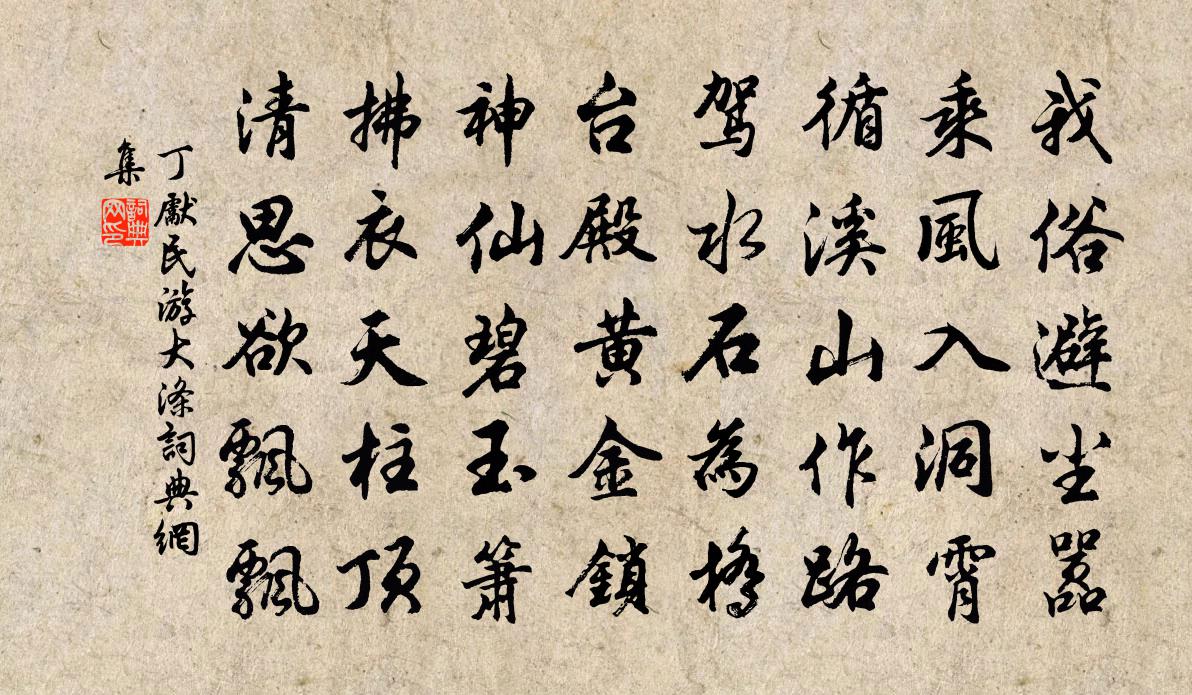 我俗避尘嚣
乘風入洞霄
循溪山作路
驾水石為橋
台殿黄金鎖
神仙碧玉簫
拂衣天柱顶
清思欲飄飄
丁獻民游大涤詞典網
集
詞典網印